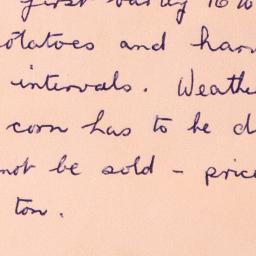 first barley 16
otatoes and har
intervals. Weathe
corn has to be d
not be sold - price
ton.